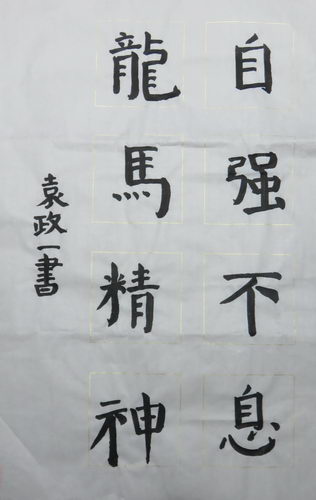 自强不息
龍馬精神
袁政一書